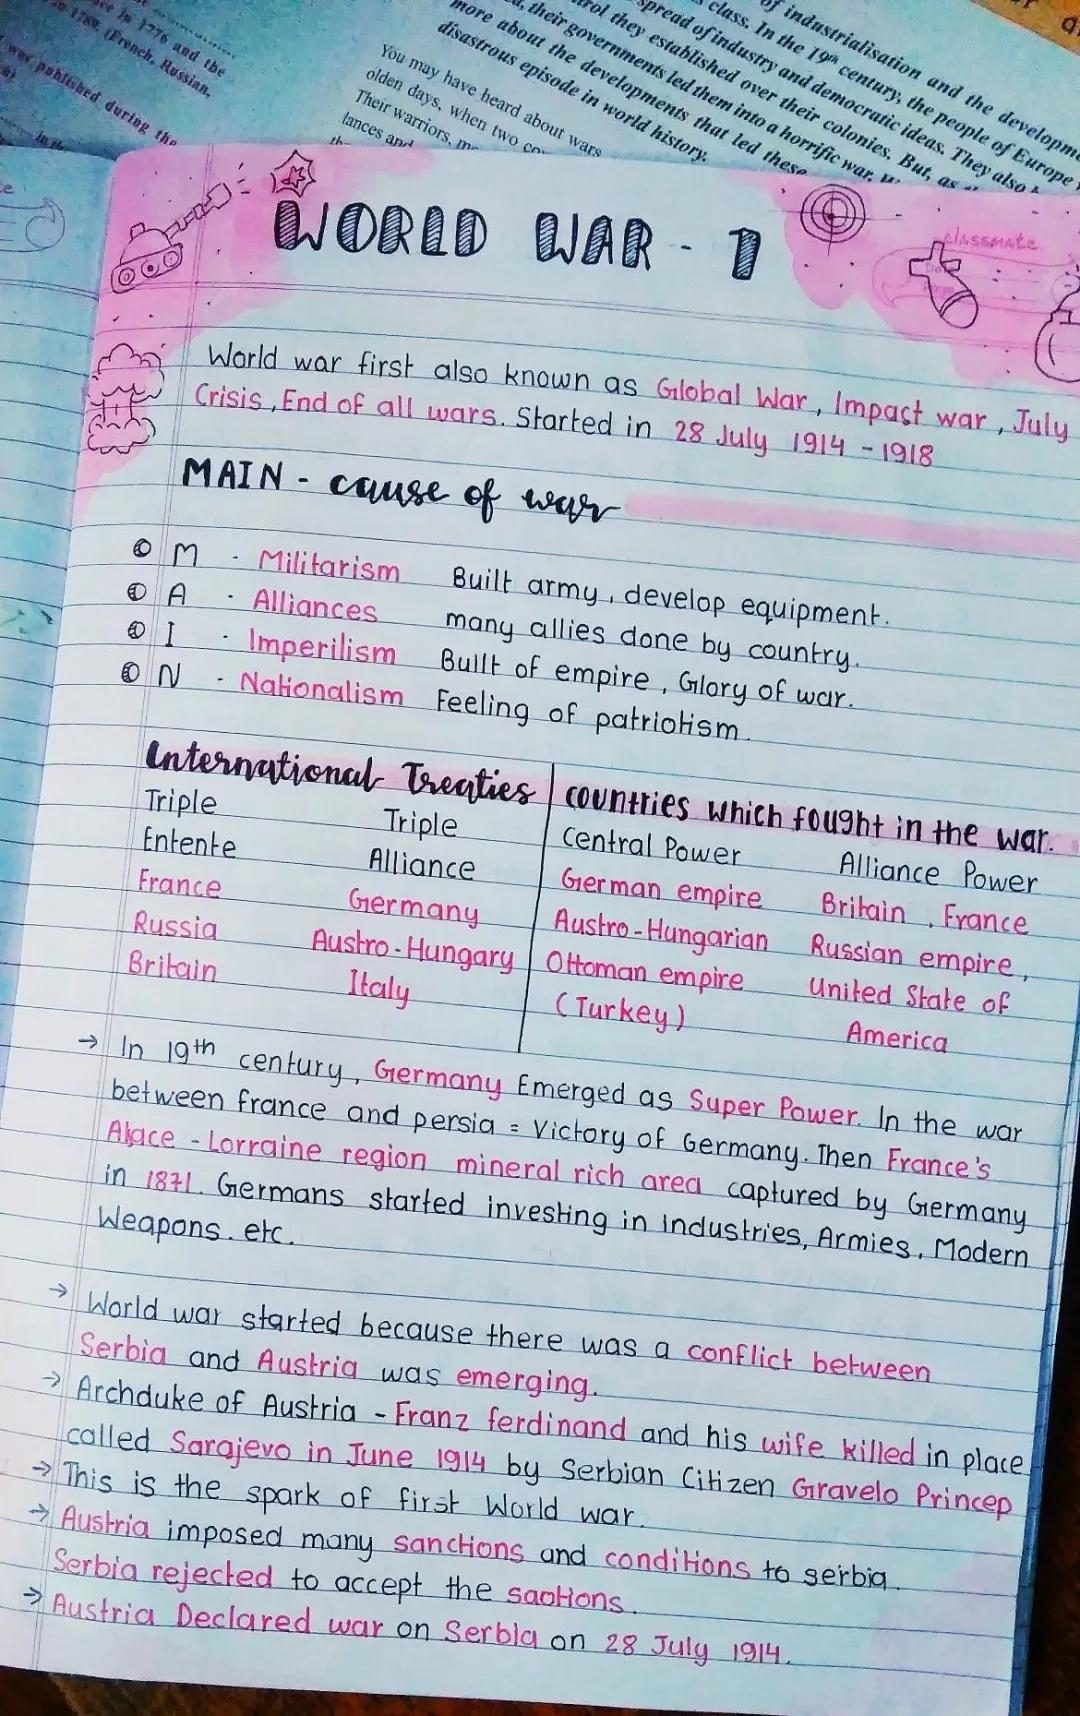 ce in 1776 and the
in 1789. (French, Russian,
was published during the
in the
You may have heard about wars
olden days, when two
Their warriors,
lances and
of industrialisation and the developme
class. In the 19th century, the people of Europe
spread of industry and democratic ideas. They also
trol they established over their colonies. But, as
their governments led them into a horrific war.
more about the developments that led these
disastrous episode in world history.
classmate
WORLD WAR - 1
World war first also known as Global War, Impact war, July
Crisis, End of all wars. Started in 28 July 1914 - 1918
MAIN - cause of war
M - Militarism Built army, develop equipment.
A - Alliances many allies done by country.
I - Imperilism Built of empire, Glory of war.
N - Nationalism Feeling of patriotism.
International Treaties | countries which fought in the war.
Triple Triple Central Power Alliance Power
Entente Alliance German empire Britain, France
France Germany Austro-Hungarian Russian empire,
Russia Austro-Hungary Ottoman empire United State of
Britain Italy (Turkey) America
→ In 19th century, Germany Emerged as Super Power. In the war
between france and persia = Victory of Germany. Then France's
Alsace - Lorraine region mineral rich area captured by Germany
in 1871. Germans started investing in industries, Armies, Modern
Weapons. etc.
→ World war started because there was a conflict between
Serbia and Austria was emerging.
→ Archduke of Austria - Franz ferdinand and his wife killed in place
called Sarajevo in June 1914 by Serbian Citizen Gravelo Princep
→ This is the spark of first World war.
→ Austria imposed many sanctions and conditions to serbia.
Serbia rejected to accept the saotions.
→ Austria Declared war on Serbia on 28 July 1914.